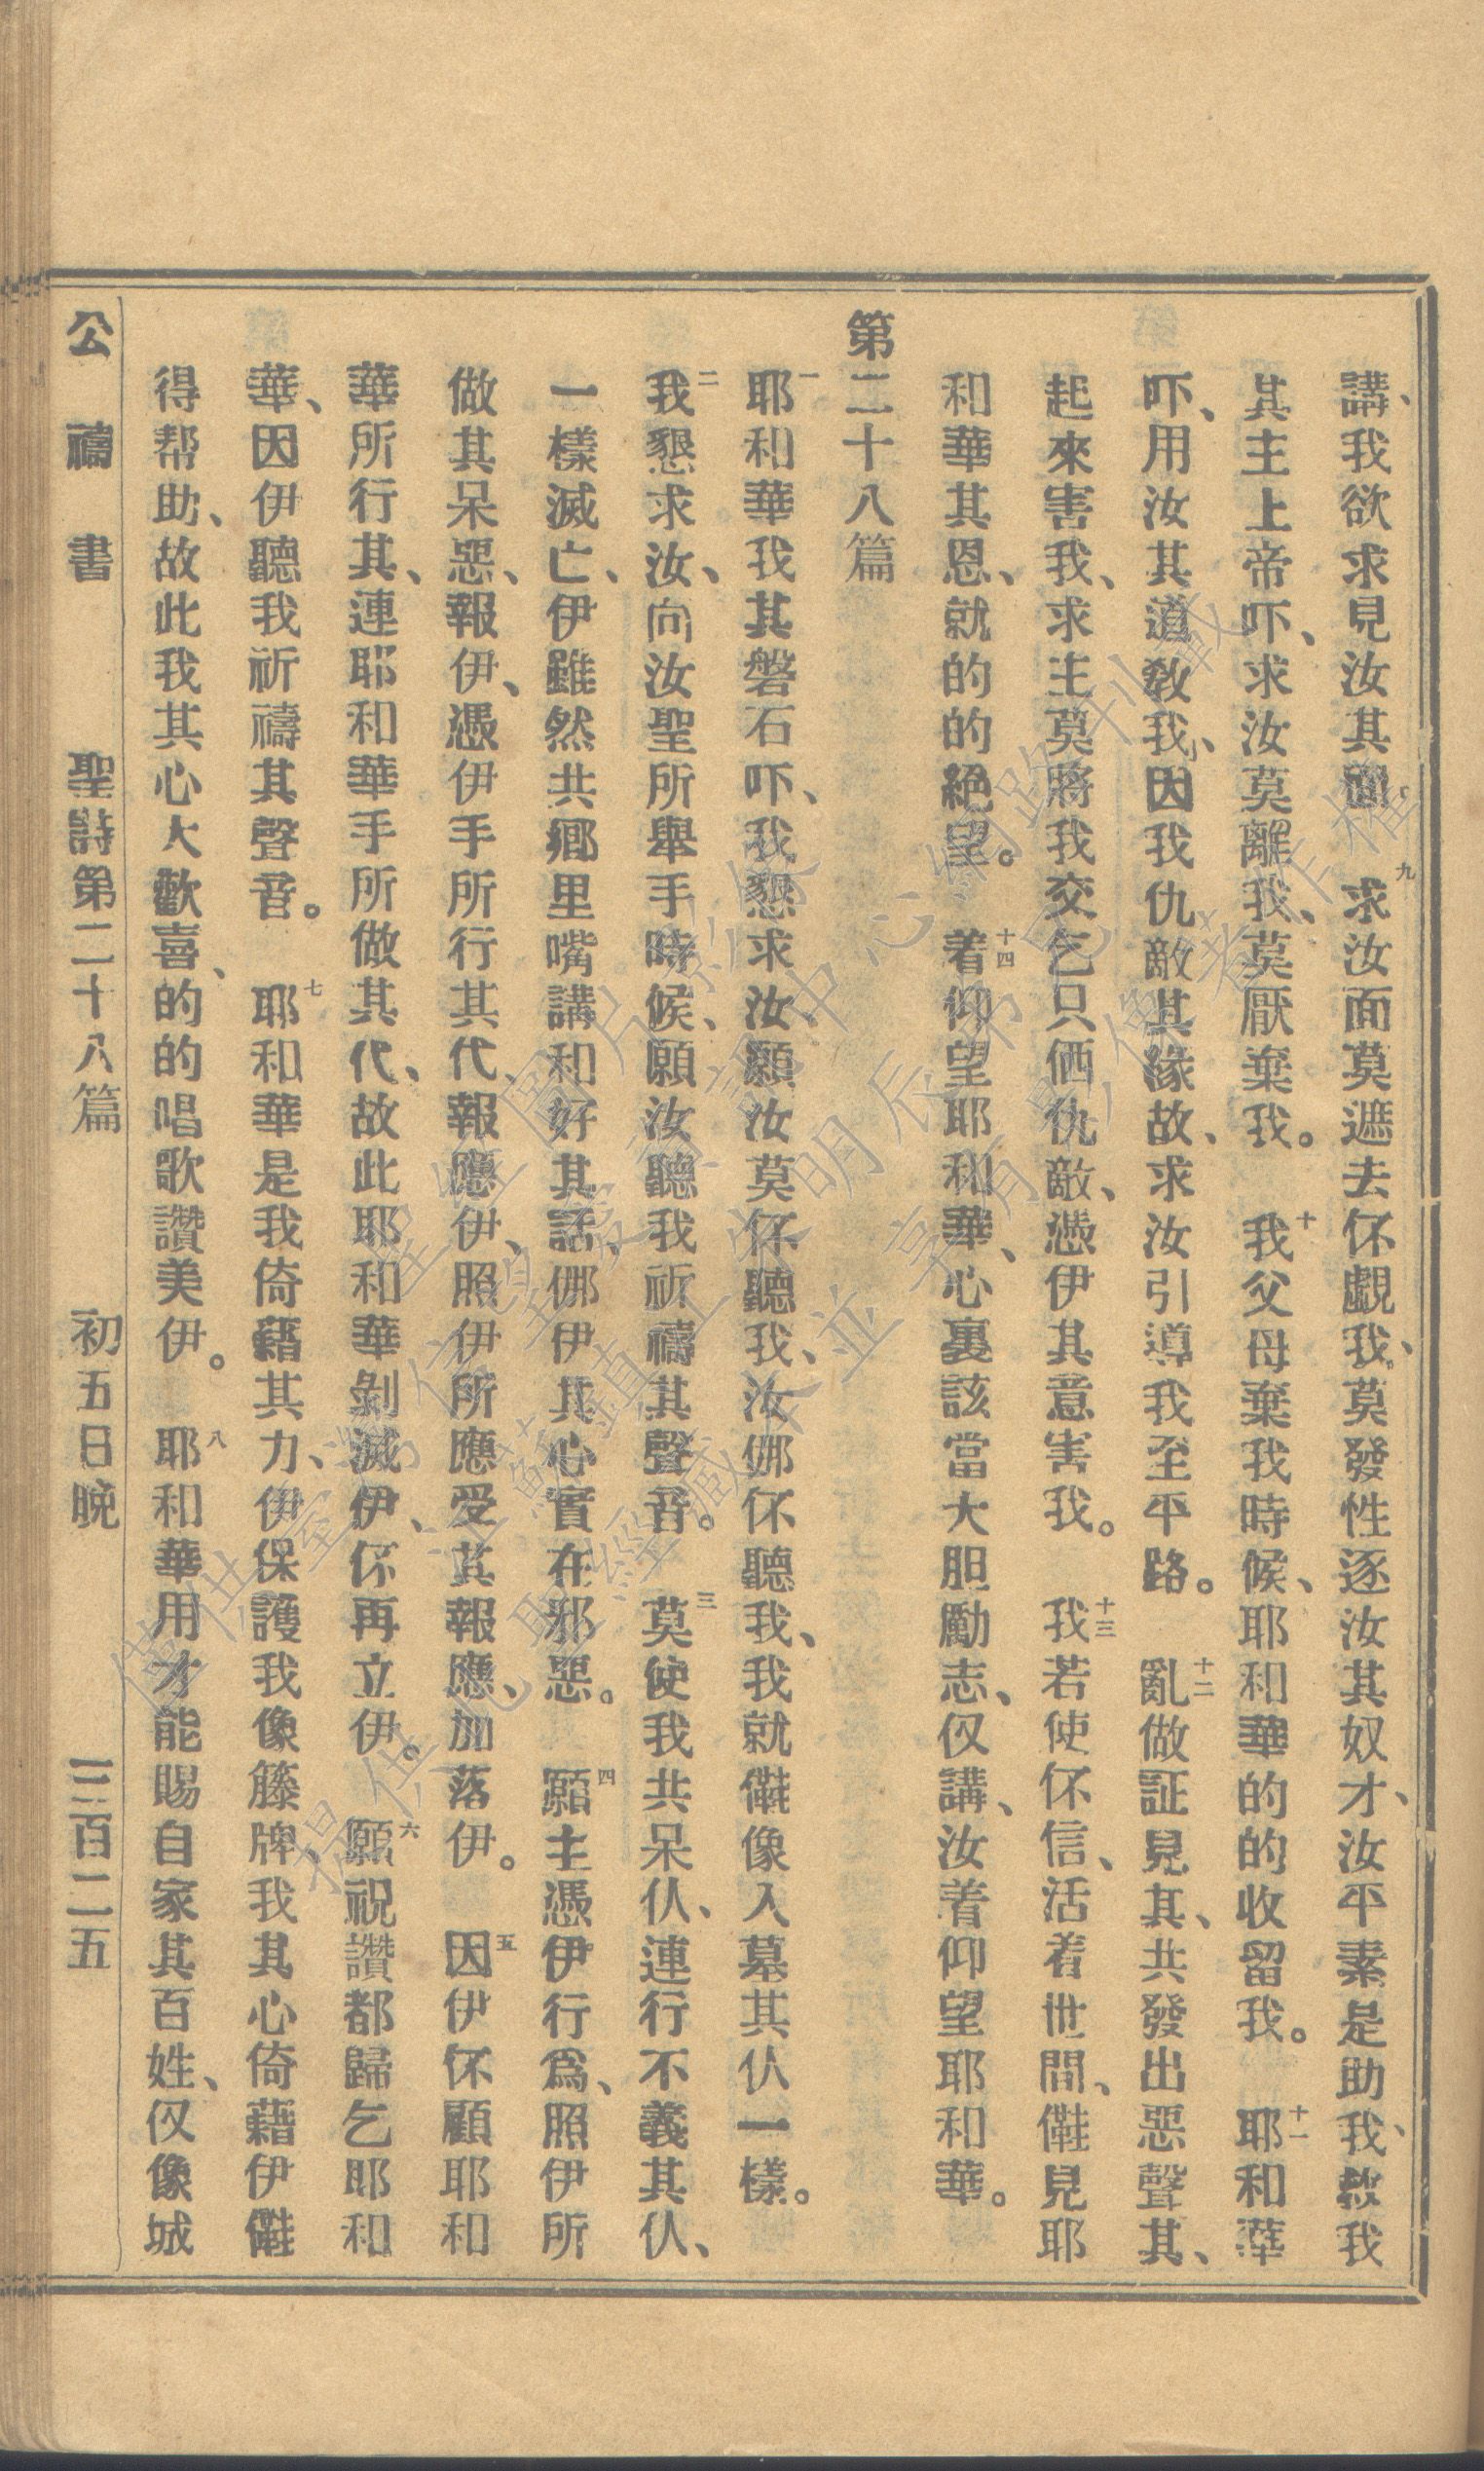 講、我欲求見汝其面、九求汝面莫遮去伓覷我、莫發性逐汝其奴才、汝平素是助我、救我
其主上帝吓、求汝莫離我、莫厭棄我。十我父母棄我時候、耶和華的的收留我。十一耶和華
吓、用汝其道教我、因我仇敵其緣故、求汝引導我至平路。十二亂做証見其、共發出惡聲其、
起來害我、求主莫將我交乞只伵仇敵、憑伊其意害我。十三我若使伓信、活着世間、儺見耶
和華其恩、就的的絕望。十四着仰望耶和華、心裏該當大胆勵志、仅講、汝着仰望耶和華。
第二十八篇
一耶和華我其磐石吓、我懇求汝、願汝莫伓聽我、汝倻伓聽我、我就儺像入墓其仈一樣。
二我懇求汝、向汝聖所舉手時候、願汝聽我祈禱其聲音。三莫使我共呆仈、連行不義其仈、
一樣滅亡、伊雖然共鄉里嘴講和好其話、倻伊其心實在邪惡。四願主憑伊行爲、照伊所
做其呆惡、報伊、憑伊手所行其代、報應伊、照伊所應受其報應、加落伊。五因伊伓顧耶和
華所行其、連耶和華手所做其代、故此耶和華剝滅伊、伓再立伊。六願祝讚都歸乞耶和
華、因伊聽我祈禱其聲音。七耶和華是我倚藉其力、伊保護我像籐牌、我其心倚藉伊儺
得帮助、故此我其心大歡喜、的的唱歌讚美伊。八耶和華用才能賜自家其百姓、仅像城
公禱書 聖詩第二十八篇 初五日晚 三百二五